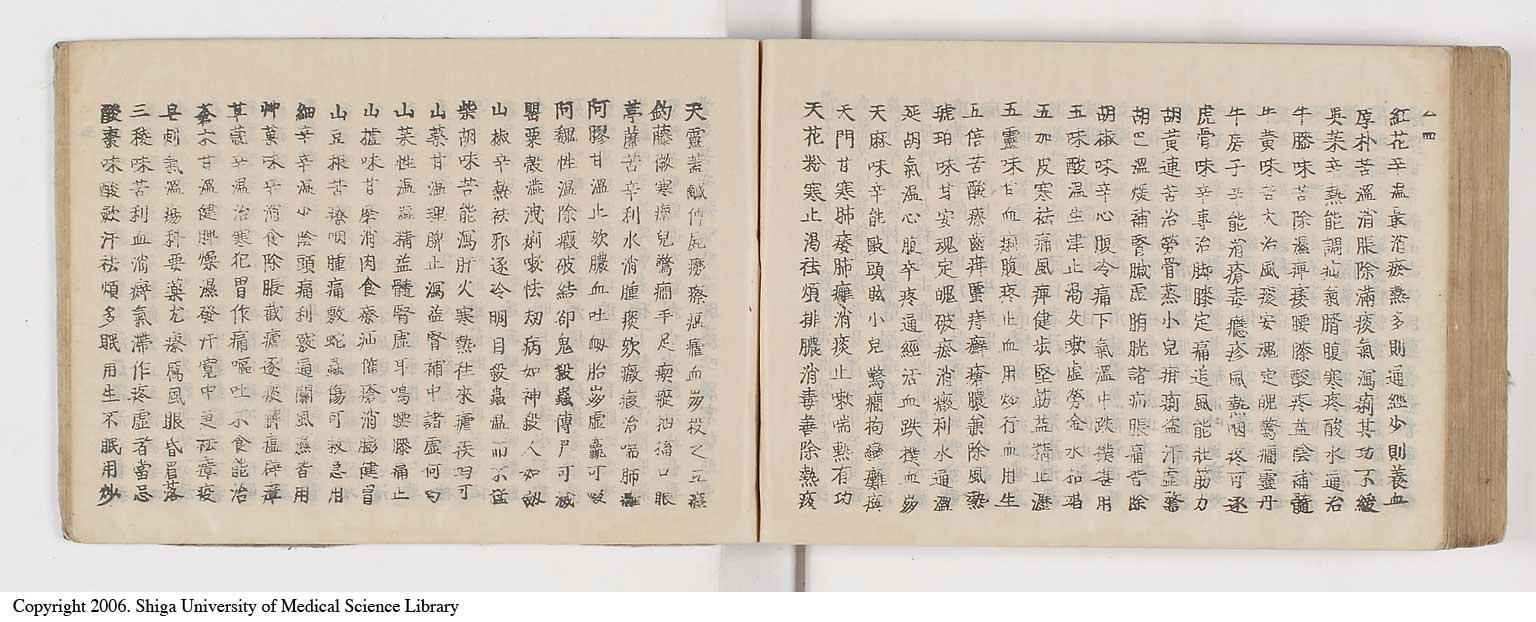 一四
紅花辛温裏消瘀熱多則通經少則養血
厚朴苦溫消脹除滿痰氣瀉痢其功不緩
吳茱辛熱能調疝氣臍腹寒疼酸水通治
牛膝味苦除濕痺痿腰膝酸疼益陰補髓
牛黃味苦大治風痰安魂定魄驚癇靈丹
牛房子辛能消瘡毒癮疹風熱咽疼可逐
虎骨味辛專治脚膝定痛追風能壯筋力
胡黃連苦治勞骨蒸小兒疳痢盜汗虛驚
胡巴溫煖補腎臟虛膀胱諸疝脹痛皆除
胡椒味辛心腹冷痛下氣溫中跌撲甚用
五味酸溫生津止渴久嗽虛勞金水枯竭
五加皮寒祛痛風痺健步堅筋益精止瀝
五靈味甘血痢腹疼止血用炒行血用生
五倍苦酸療齒疳䘌痔癬瘡膿兼除風熱
琥珀味甘安魂定魄破瘀消癥利水通澀
延胡氣溫心腹卒疼通經活血跌撲血崩
天麻味辛能敺頭眩小兒驚癇拘攣癱瘓
天門甘寒肺痿肺癰消痰止嗽喘熱有功
天花粉寒止渴祛煩排膿消毒善除熱痰
天靈蓋鹹傳屍癆瘵瘟瘧血崩投之立瘥
鈎藤微寒療兒驚癇手足瘈瘲抽搐口眼
葶藶苦辛利水消腫痰欬癥瘕治喘肺癰
阿膠甘溫止欬膿血吐衂胎崩虛羸可啜
阿魏性溫除癥破結卻鬼殺蟲傳尸可滅
罌粟殼澁洩痢嗽怯劫病如神殺人如劒
山椒辛熱祛邪逐冷明目殺蟲温而不猛
柴胡味苦能瀉肝火寒熱往來瘧疾均可
山藥甘溫理脾止瀉益腎補中諸虛何
山茱性溫澁精益髓腎虛耳鳴腰膝痛止
山楂味甘磨消肉食療疝催瘡消膨健胃
山豆根苦療咽腫痛敷蛇蟲傷可救急用
細辛辛溫少陰頭痛利竅通關風濕皆用
艸菓味辛消食除脹截瘧逐痰解瘟辟瘴
草蔲辛溫治寒犯胃作痛嘔吐不食能治
蒼朮甘溫健脾燥濕發汗寬中更祛瘴疫
皂刺氣溫瘍科要藥尤療厲風眼昏眉落
三稜味苦利血消癖氣滯作疼虛者當忌
酸棗味酸歛汗祛煩多眠用生不眠用炒
Copyright 2006. Shiga University of Medical Science Library